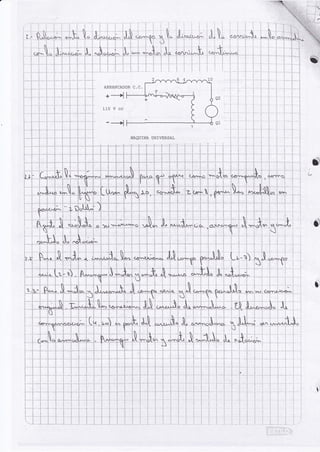 2.- Relación entre la dirección del campo y la dirección de la corriente en la armadura
con la dirección de rotación de un motor de corriente continua
ARRANCADOR C.C.
115 V cc
MAQUINA UNIVERSAL
2.1- Conecte la maquina universal para que opere como motor compuesto, como
indica en la figura (Usar plug 20, conecte 2 con 8, poner las escobillas en
posición "1 Doble")
Ajuste el reostato a su minimo valor de resistencia, arranque el motor y anote
sentido de rotación
2.2 Pare el motor e invierta las conexiones del campo paralelo (1-7) y el campo
serie (2-8). Arranque el motor y anote el nuevo sentido de rotación
2.3- Pare el motor y desconecte el campo serie y el campo paralelo en su conexión
original. Invierta las conexiones del circuito de armadura. El devanado de
compensación es parte del circuito de armadura y deberá ser invertido
con la armadura. Arranque el motor y anote el sentido de rotación